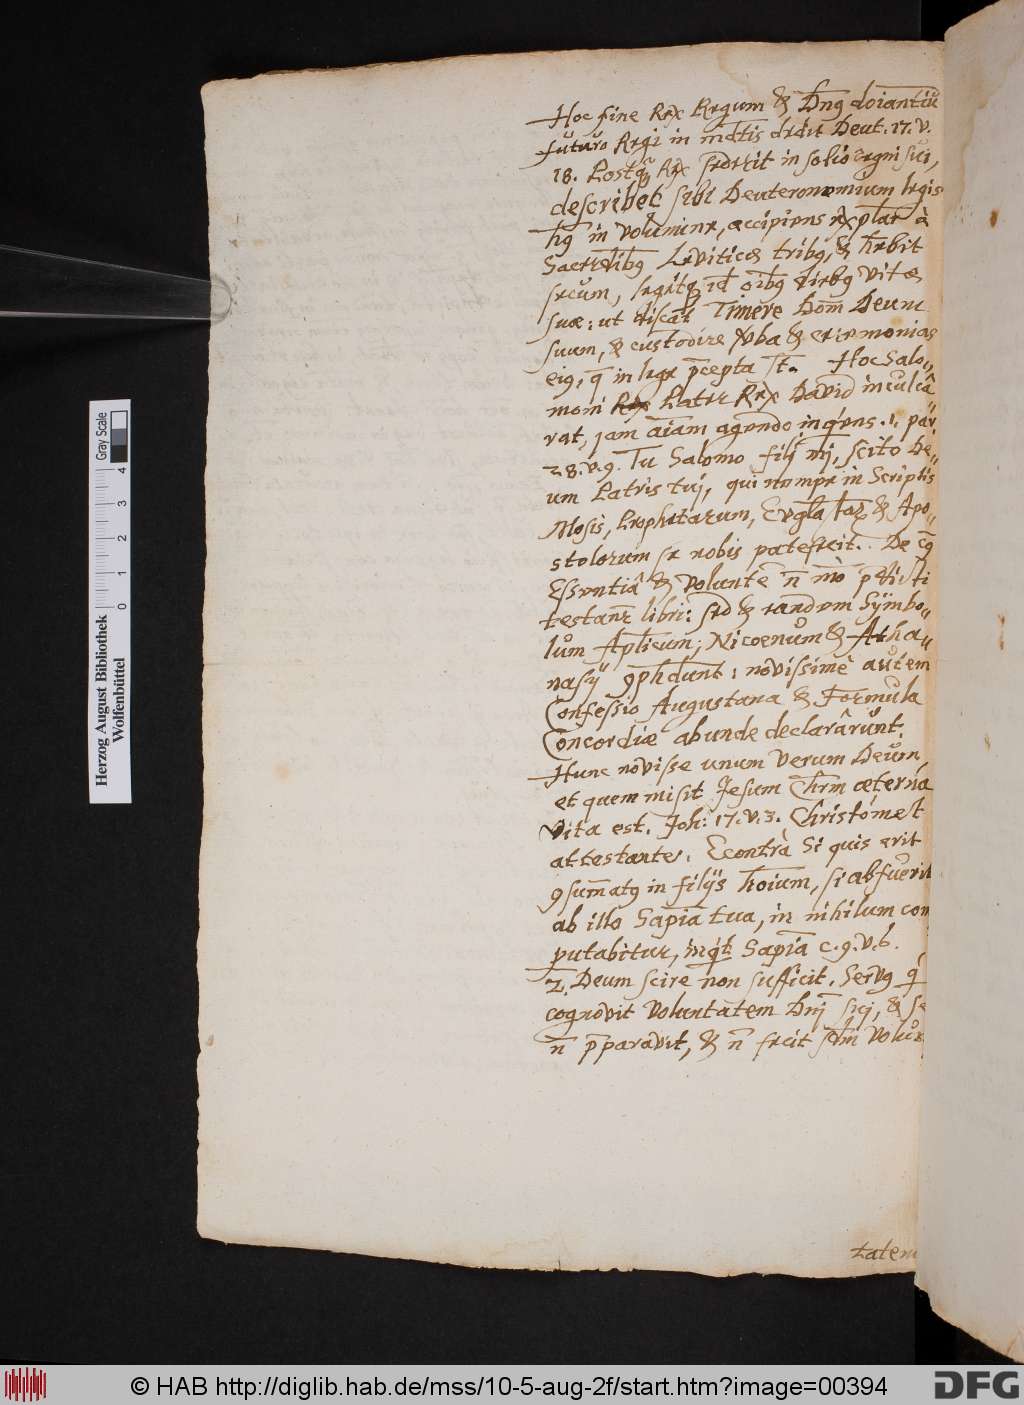 Hoc fine Rex Regum & Dn̄9 doīantiū
futuro Regi in mādtis dedit Deut. 17. v.
18. Postq̄ Rex sederit in solio regni sui,
describet sibi Deuteronomium legis
h9 in volumine, accipiens exp̄lar à
Sacerdotib9 Leviticæ trib9, & h̄ebit
secum, legetq3 id oīb9 dieb9 vitæ
suæ: ut discat Timere Dom̄ Deum
suum, & custodire v̄ba & ceremonias
ei9, q̄ in lege p̄cepta st̄. Hoc Salo„
moni Pater Rex David inculcâ
rat, jam aīam agendo inq́ens. 1. par.
28. v. 9. Tu Salomo filj mj, scito De„
um Patris tuj, qui nempe in Scriptis
Mosis, Prophetarum, Evgl̄a & Apo„
stolorum se nobis patefecit. De c9
Essentiâ & volunte n̄ mō p̄dicti
testanr̄ libri: sed & eandem Sÿmbo„
lum Ap̄licum, Nicoenum & Atha„
nasÿ 9ph̄dunt: novissimè autem
Confessio Augustana & Formula
Concordiæ abunde declarârunt.
Hunc novisse unum verum Deum,
et quem misit Jesum Chrm̄ æterna
vita est. Joh: 17. v. 3. Christo me t
attestante. Econtrà Si quis erit
9sum̄at9 in filÿs hoīum, si abfuerit
ab illo Sapīa tua, in nihilum com
putabitur, inq́t Sapīa c. 9. v. 6.
2. Deum scire non sufficit. Serv9 q́
cognovit voluntatem Dn̄j sui, & se
n̄ p̄paravit, & n̄ fecit scdm̄ volun
tatem
Herzog August Bibliothek
Wolfenbüttel
0 1 2 3 4
Gray Scale
© HAB http://diglib.hab.de/mss/10-5-aug-2f/start.htm?image=00394
DFG